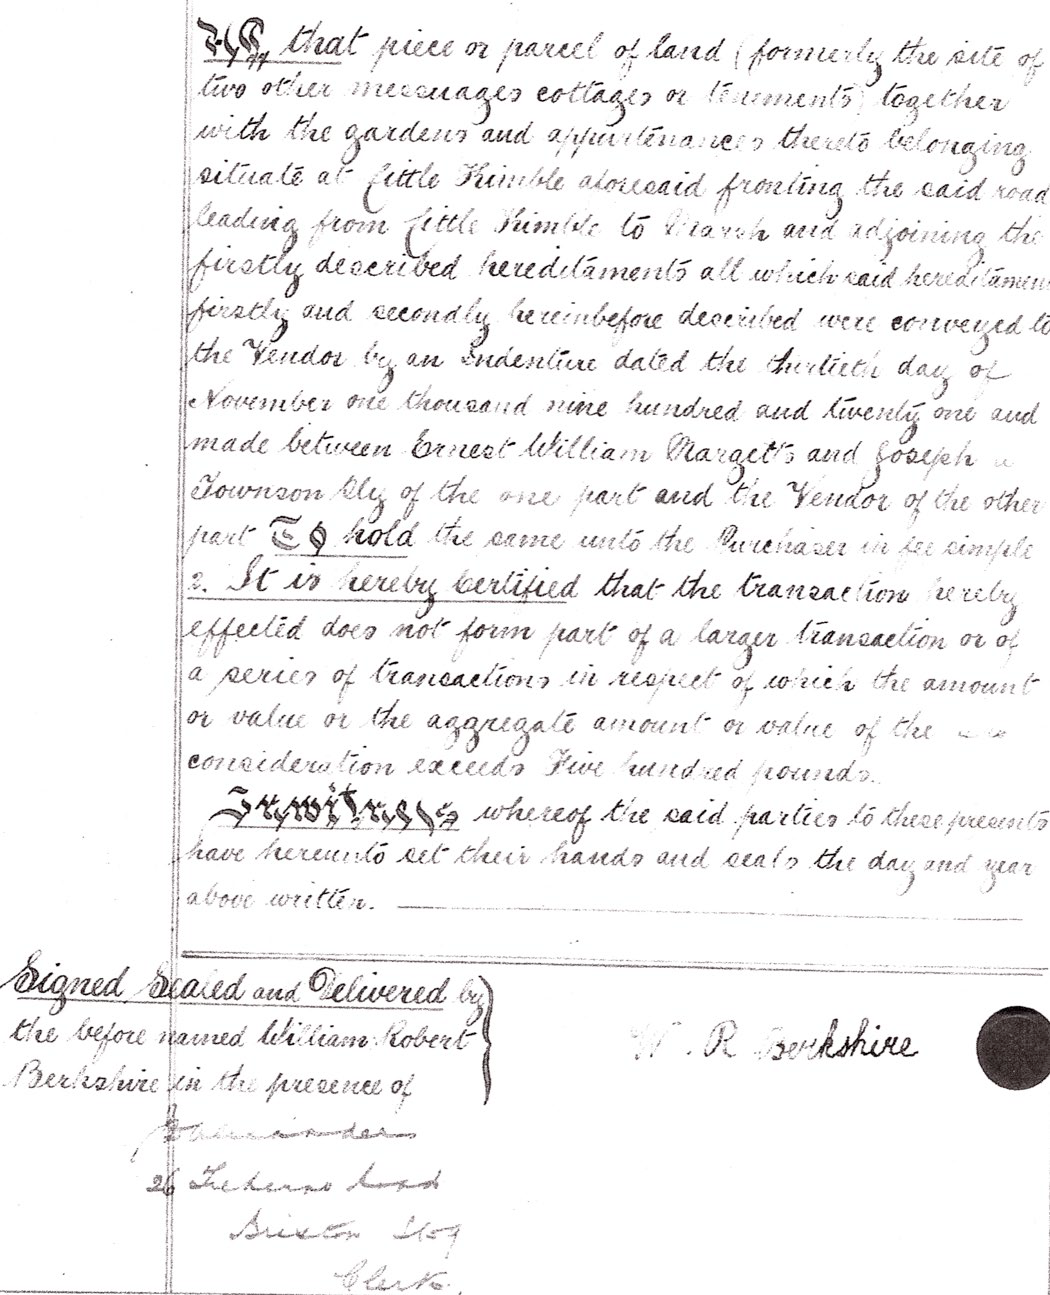 All that piece or parcel of land (formerly the site of
two other messuages cottages or tenements) together
with the gardens and appurtenances thereto belonging
situate at Little Kimble aforesaid fronting the said road
leading from Little Kimble to Marsh and adjoining the
firstly described hereditaments all which said hereditaments
firstly and secondly hereinbefore described were conveyed to
the Vendor by an Indenture dated the thirtieth day of
November one thousand nine hundred and twenty one and
made between Ernest William Margetts and Joseph
Townson of the one part and the Vendor of the other
part To hold the same unto the Purchaser in fee simple
2. It is hereby certified that the transaction hereby
effected does not form part of a larger transaction or of
a series of transactions in respect of which the amount
or value or the aggregate amount or value of the
consideration exceeds Five hundred pounds.
In witness whereof the said parties to these presents
have hereunto set their hands and seals the day and year
above written.
Signed Sealed and Delivered by
the before named William Robert
Berkshire in the presence of
W. R. Berkshire
26
Brixton
Clerk.